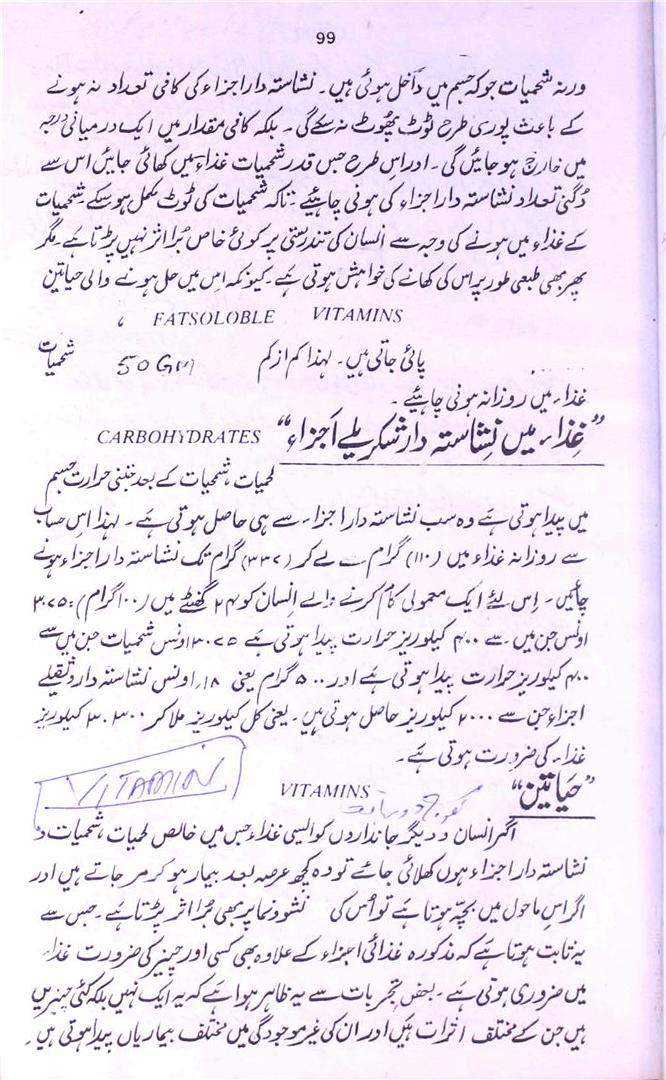 99
ورنہ شحمیات جوکہ جسم میں داخل ہوئی ہیں۔ نشاستہ دار اجزاء کی کافی تعداد نہ ہونے
کے باعث پوری طرح ٹوٹ پھوٹ نہ سکے گی۔ بلکہ کافی مقدار میں ایک درمیانی درجہ
میں خارج ہو جائیں گی۔ اور اس طرح جس قدر شحمیات غذاء میں کھائی جائیں اس سے
دگنی تعداد نشاستہ دار اجزاء کی ہونی چاہیئے تاکہ شحمیات کی ٹوٹ مکمل ہو سکے شحمیات
کے غذاء میں ہونے کی وجہ سے انسان کی تندرستی پر کوئی خاص بُرا اثر نہیں پڑتا ہے۔ مگر
پھر بھی طبعی طور پر اس کی کھانے کی خواہش ہوتی ہے۔ کیونکہ اس میں حل ہونے والی حیاتین
FATSOLOBLE VITAMINS ،
پائی جاتی ہیں۔ لہذا کم از کم 50 Gm شحمیات
غذاء میں روزانہ ہونی چاہیئے۔
”غِذاء میں نِشاستہ دار شکریلے اَجزاء“ CARBOHYDRATES
لحمیات، شحمیات کے بعد جتنی حرارت جسم
میں پیدا ہوتی ہے وہ سب نشاستہ دار اجزاء سے ہی حاصل ہوتی ہے۔ لہذا اس حساب
سے روزانہ غذاء میں (۱۱۰) گرام سے لے کر (۳۳۷) گرام تک نشاستہ دار اجزاء ہونے
چاہیں۔ اِس لیئے ایک معمولی کام کرنے والے انسان کو ۲۴ گھنٹے میں (۱۰۰ گرام) ۳.۷۵
اونس جن میں سے ۴۰۰ کیلوریز حرارت پیدا ہوتی ہے ۳.۲۵ اونس شحمیات جن میں سے
۴۰۰ کیلوریز حرارت پیدا ہوتی ہے اور ۵۰۰ گرام یعنی ۱۸، اونس نشاستہ دار
اجزاء جن سے ۲۰۰۰ کیلوریز حاصل ہوتی ہیں۔ یعنی کل کیلوریز ملا کر ۳۰۳۰۰ کیلوریز
غذاء کی ضرورت ہوتی ہے۔
VITAMIN
”حَیاتین“ VITAMINS
اگر انسان و دیگر جانداروں کو ایسی غذاء جس میں خالص لحمیات، شحمیات و
نشاستہ دار اجزاء ہوں کھلائی جائے تو وہ کچھ عرصہ بعد بیمار ہو کر مر جاتے ہیں اور
اگر اس ماحول میں بچہ ہوتا ہے تو اُس کی نشوونما پر بھی بُرا اثر پڑتا ہے۔ جس سے
یہ ثابت ہوتا ہے کہ مذکورہ غذائی اجزاء کے علاوہ بھی کسی اور چیز کی ضرورت غذاء
میں ضروری ہوتی ہے۔ بعض تجربات سے یہ ظاہر ہوا ہے کہ یہ ایک نہیں بلکہ کئی چیزیں
ہیں جن کے مختلف اثرات ہیں اور ان کی غیر موجودگی میں مختلف بیماریاں پیدا ہوتی ہیں۔